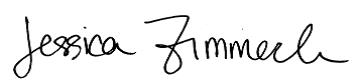 Jessica Zimmerle